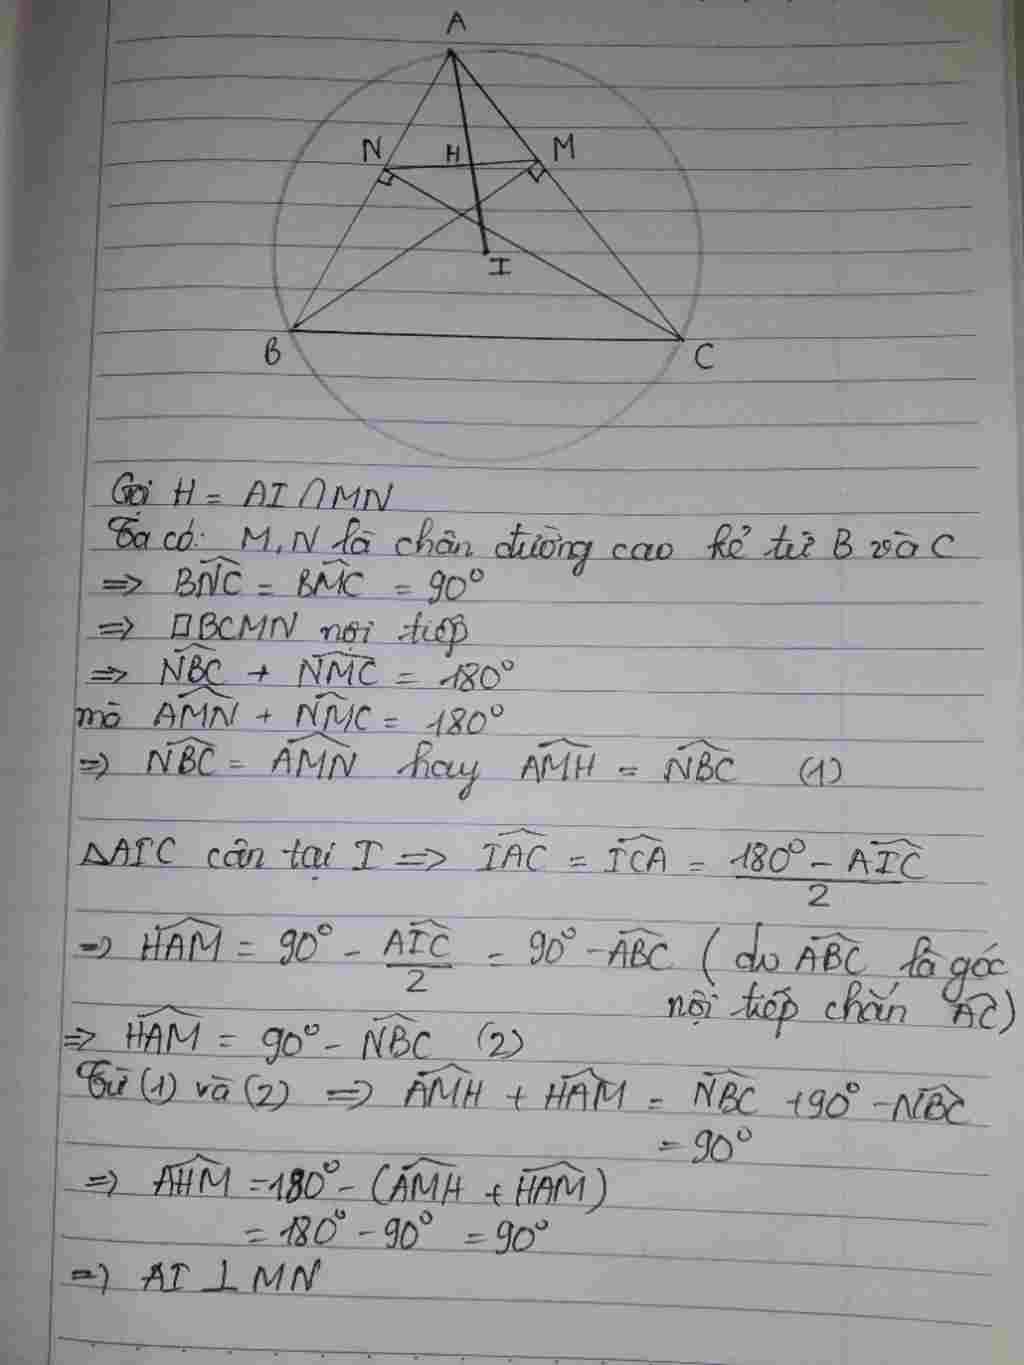 A
N H M
I
B C
Gọi H = AI ∩ MN
Ta có: M, N là chân đường cao kẻ từ B và C
=> \widehat{BNC} = \widehat{BMC} = 90°
=> □BCMN nội tiếp
=> \widehat{NBC} + \widehat{NMC} = 180°
mà \widehat{AMN} + \widehat{NMC} = 180°
=> \widehat{NBC} = \widehat{AMN} hay \widehat{AMH} = \widehat{NBC} (1)
ΔAIC cân tại I => \widehat{IAC} = \widehat{ICA} = \frac{180° - \widehat{AIC}}{2}
=> \widehat{HAM} = 90° - \frac{\widehat{AIC}}{2} = 90° - \widehat{ABC} (do \widehat{ABC} là góc
nội tiếp chắn \widehat{AC})
=> \widehat{HAM} = 90° - \widehat{NBC} (2)
Từ (1) và (2) => \widehat{AMH} + \widehat{HAM} = \widehat{NBC} + 90° - \widehat{NBC}
= 90°
=> \widehat{AHM} = 180° - (\widehat{AMH} + \widehat{HAM})
= 180° - 90° = 90°
=> AI ⊥ MN